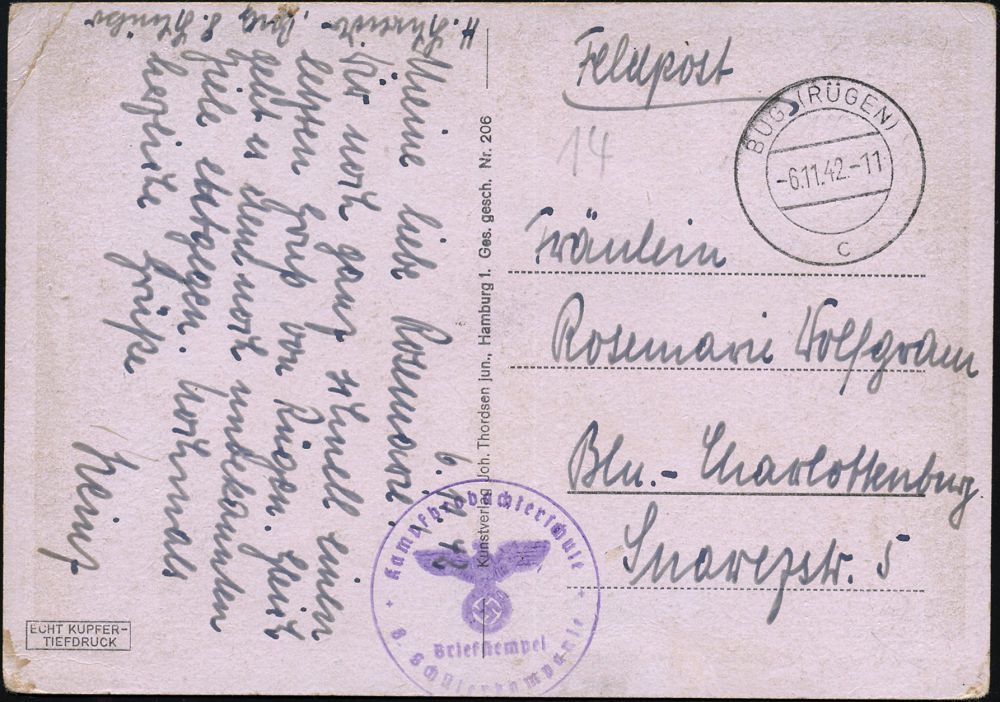 Feldpost
14
BUG (RÜGEN)
-6.11.42.-11
c
Fräulein
Rosemarie Wolfgram
Bln.-Charlottenburg.
Suarezstr. 5
6. 11. 42
Meine liebe Rosemarie!
Dir noch ganz schnell einen
letzten Gruß von Rügen. Gleich
geht es dem noch unbekannten
Ziele entgegen. Nochmals
herzliche Grüße
Heinz
Kunstverlag Joh. Thordsen jun., Hamburg 1. Ges. gesch. Nr. 206
Kampfbeobachterschule
Briefstempel
8. Schülerkompanie
ECHT KUPFER-
TIEFDRUCK